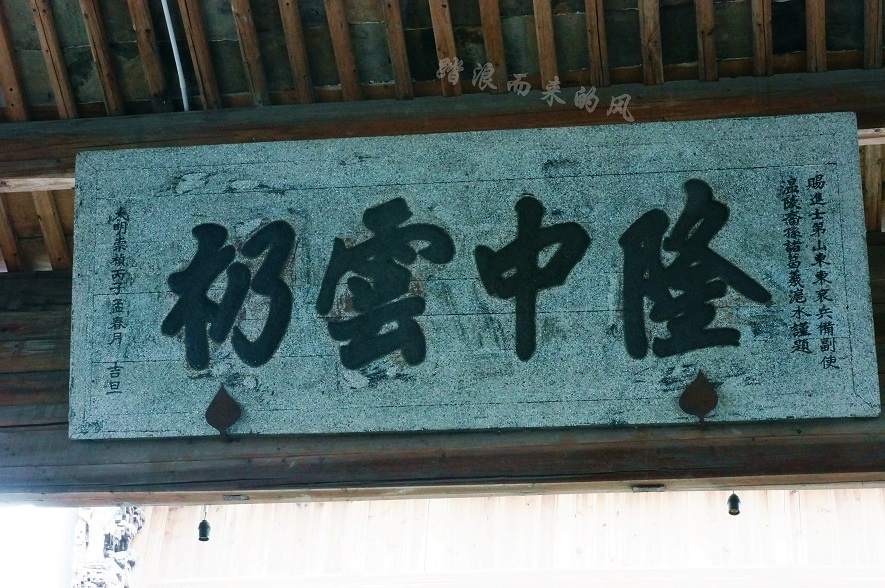 踏浪而来的风
賜進士第山東東兗兵備副使
溫陵裔孫諸葛羲沠水謹題
隆中雲礽
大明崇禎丙子孟春月 吉旦